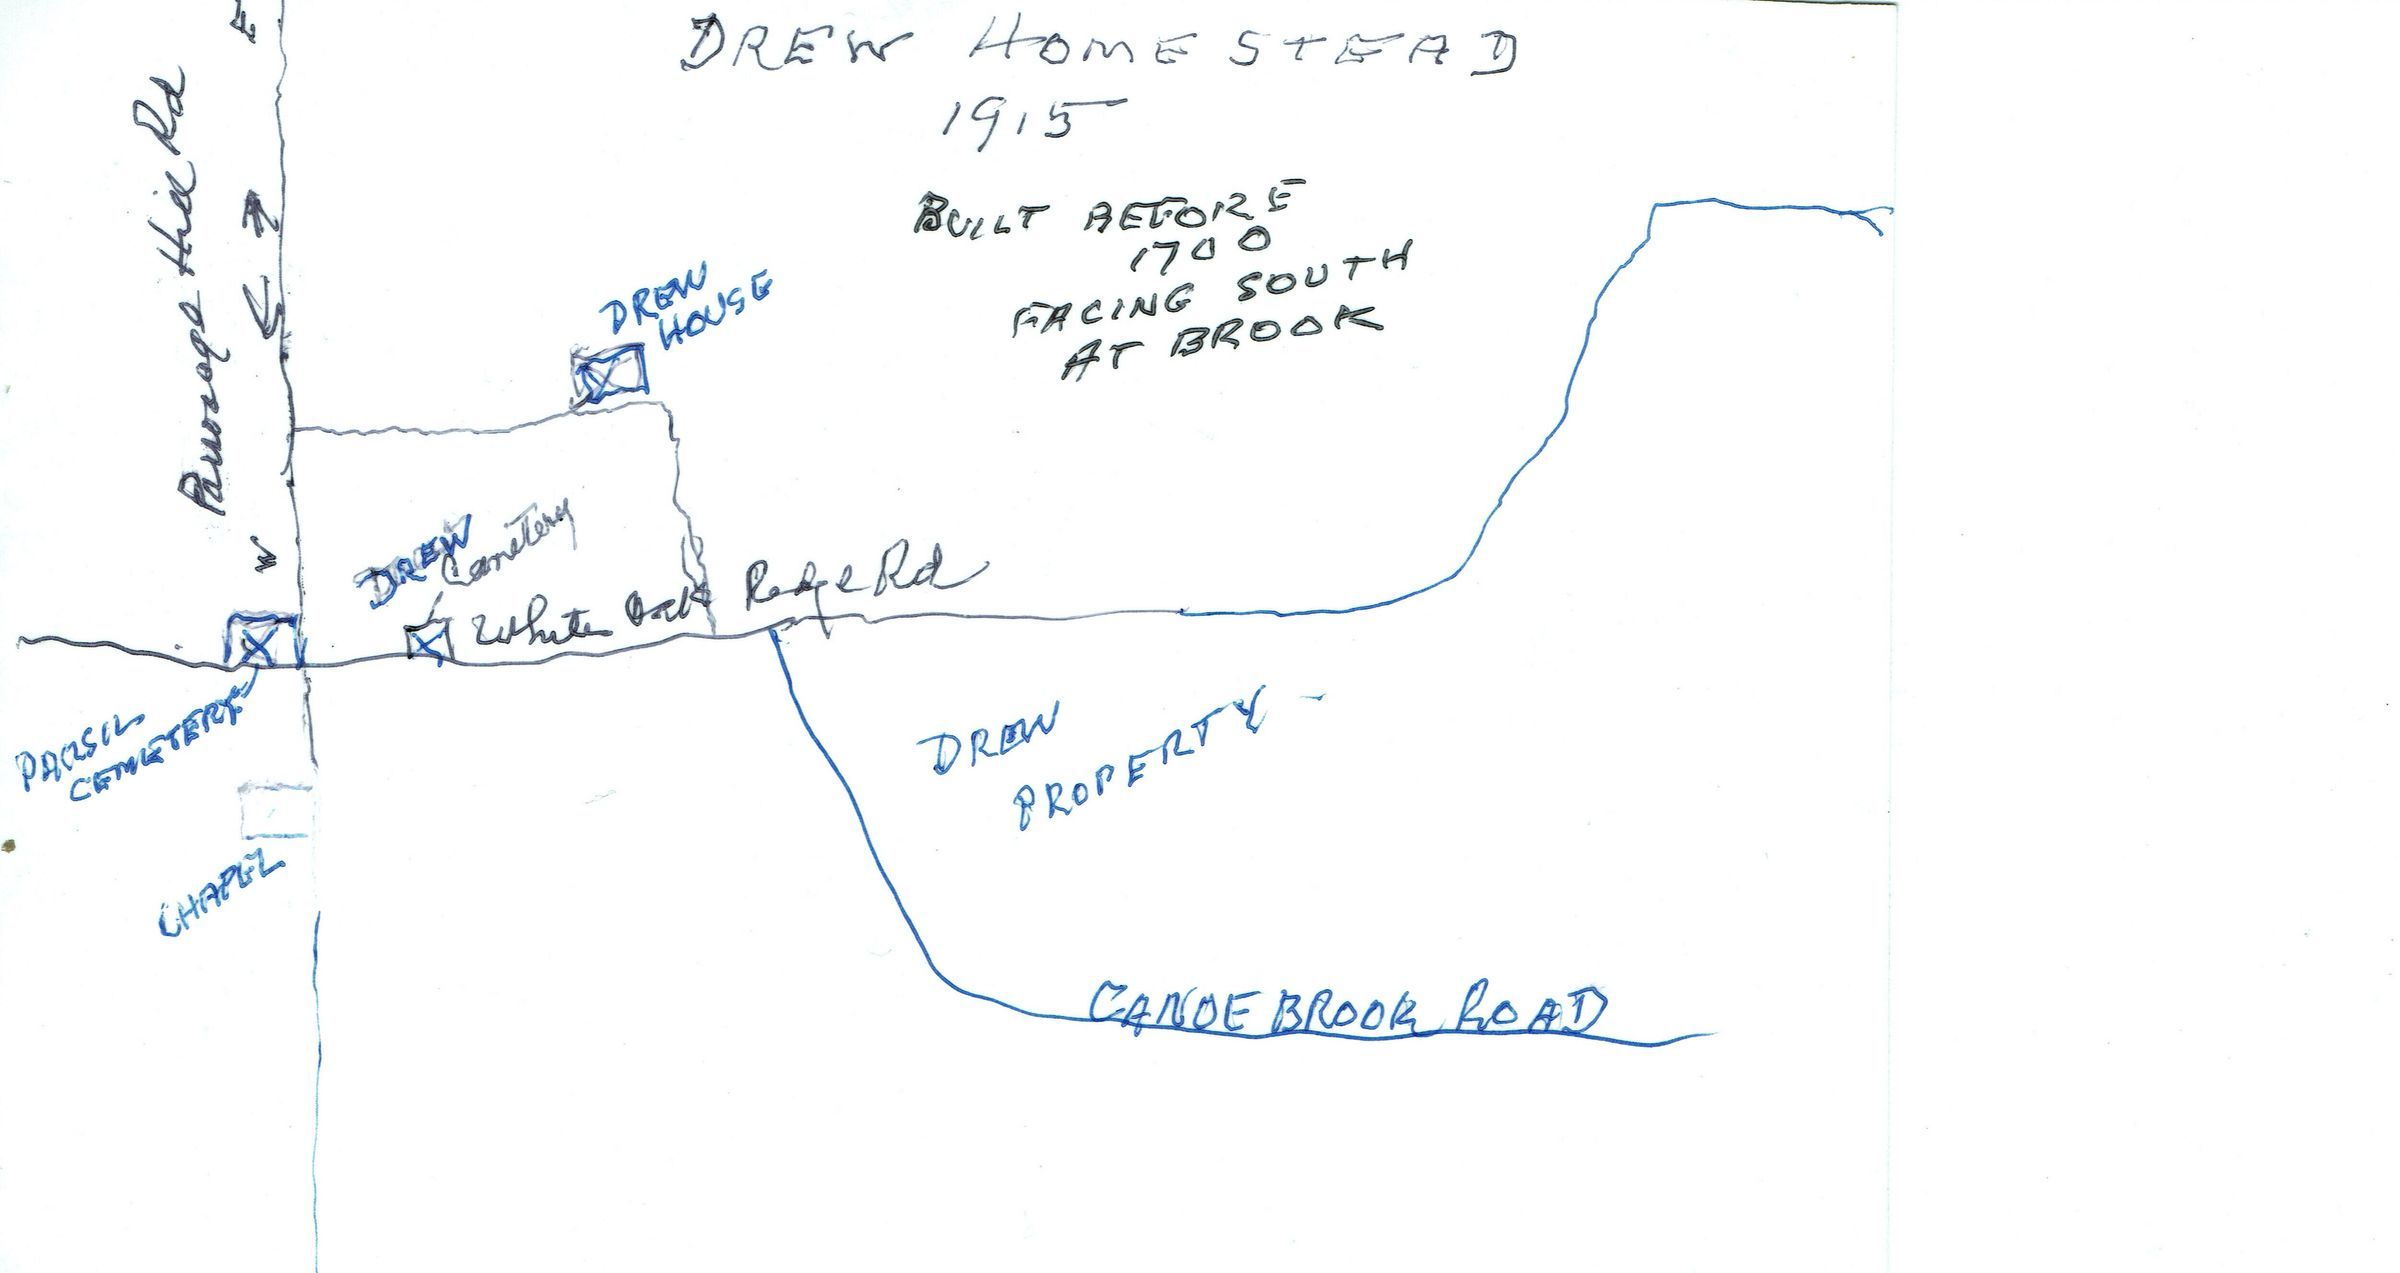 DREW HOMESTEAD
1915
BUILT BEFORE
1700
FACING SOUTH
AT BROOK
E
Parsonage Hill Rd
W
DREW
HOUSE
DREW
Cemetery
White Oak Redge Rd
PARSIL
CEMETERY
CHAPEL
DREW
PROPERTY
CANOE BROOK ROAD